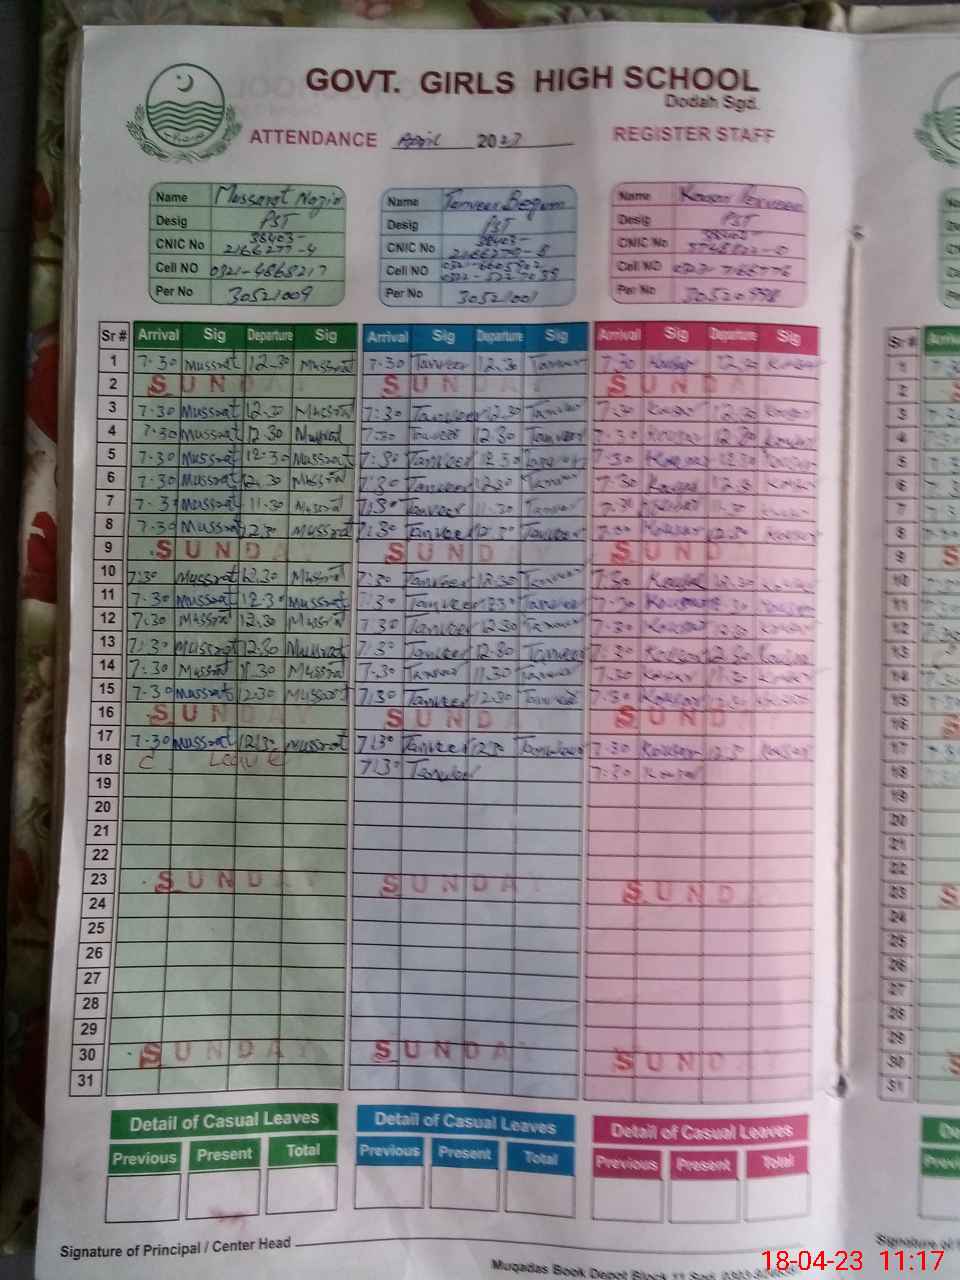 GOVT. GIRLS HIGH SCHOOL
Dodah Sgd.
ATTENDANCE April 2023 REGISTER STAFF
Name Mussarat Nazir Name Tanveer Begum Name Kousar Perveen
Desig PST Desig PST Desig PST
CNIC No 38403- CNIC No 38403- CNIC No
2166277-4 2166270-8
Cell NO 0321-4868217 Cell NO Cell NO
Per No 30521009 Per No 30521001 Per No 30520998
Sr # Arrival Sig Departure Sig Arrival Sig Departure Sig Arrival Sig Departure Sig Sr #
1 7.30 Mussrat 12.30 Mussrat 7.30 Tanveer 12.30 Tanveer 7.30 Kousar 12.30 Kousar 1
2 SUNDAY SUNDAY SUNDA 2
3 7.30 Mussrat 12.30 Mussrat 7.30 Tanveer 12.30 Tanveer 7.30 Kousar 12.30 Kousar 3
4 7.30 Mussrat 12.30 Mussrat 7.30 Tanveer 12.30 Tanveer 7.30 Kousar 12.30 Kousar 4
5 7.30 Mussrat 12.30 Mussrat 7.30 Tanveer 12.30 Tanveer 7.30 Kousar 12.30 Kousar 5
6 7.30 Mussrat 12.30 Mussrat 7.30 Tanveer 12.30 Tanveer 7.30 Kousar 12.30 Kousar 6
7 7.30 Mussrat 11.30 Mussrat 7.30 Tanveer 11.30 Tanveer 7.30 Kousar 11.30 Kousar 7
8 7.30 Mussrat 12.30 Mussrat 7.30 Tanveer 12.30 Tanveer 7.30 Kousar 12.30 Kousar 8
9 SUNDAY SUNDAY SUND 9
10 7.30 Mussrat 12.30 Mussrat 7.30 Tanveer 12.30 Tanveer 7.30 Kousar 12.30 Kousar 10
11 7.30 Mussrat 12.30 Mussrat 7.30 Tanveer 12.30 Tanveer 7.30 Kousar 12.30 Kousar 11
12 7.30 Mussrat 12.30 Mussrat 7.30 Tanveer 12.30 Tanveer 7.30 Kousar 12.30 Kousar 12
13 7.30 Mussrat 12.30 Mussrat 7.30 Tanveer 12.30 Tanveer 7.30 Kousar 12.30 Kousar 13
14 7.30 Mussrat 11.30 Mussrat 7.30 Tanveer 11.30 Tanveer 7.30 Kousar 11.30 Kousar 14
15 7.30 Mussrat 12.30 Mussrat 7.30 Tanveer 12.30 Tanveer 7.30 Kousar 12.30 Kousar 15
16 SUNDAY SUNDAY SUNDA 16
17 7.30 Mussrat 12.30 Mussrat 7.30 Tanveer 12.30 Tanveer 7.30 Kousar 12.30 Kousar 17
18 C Leave 7.30 Tanveer 7.30 Kousar 18
19 19
20 20
21 21
22 22
23 SUNDAY SUNDAY SUND 23
24 24
25 25
26 26
27 27
28 28
29 29
30 SUNDAY SUNDAY SUND 30
31 31
Detail of Casual Leaves Detail of Casual Leaves Detail of Casual Leaves
Previous Present Total Previous Present Total Previous Present Total
Signature of Principal / Center Head
Muqadas Book Depot Block 11
18-04-23 11:17